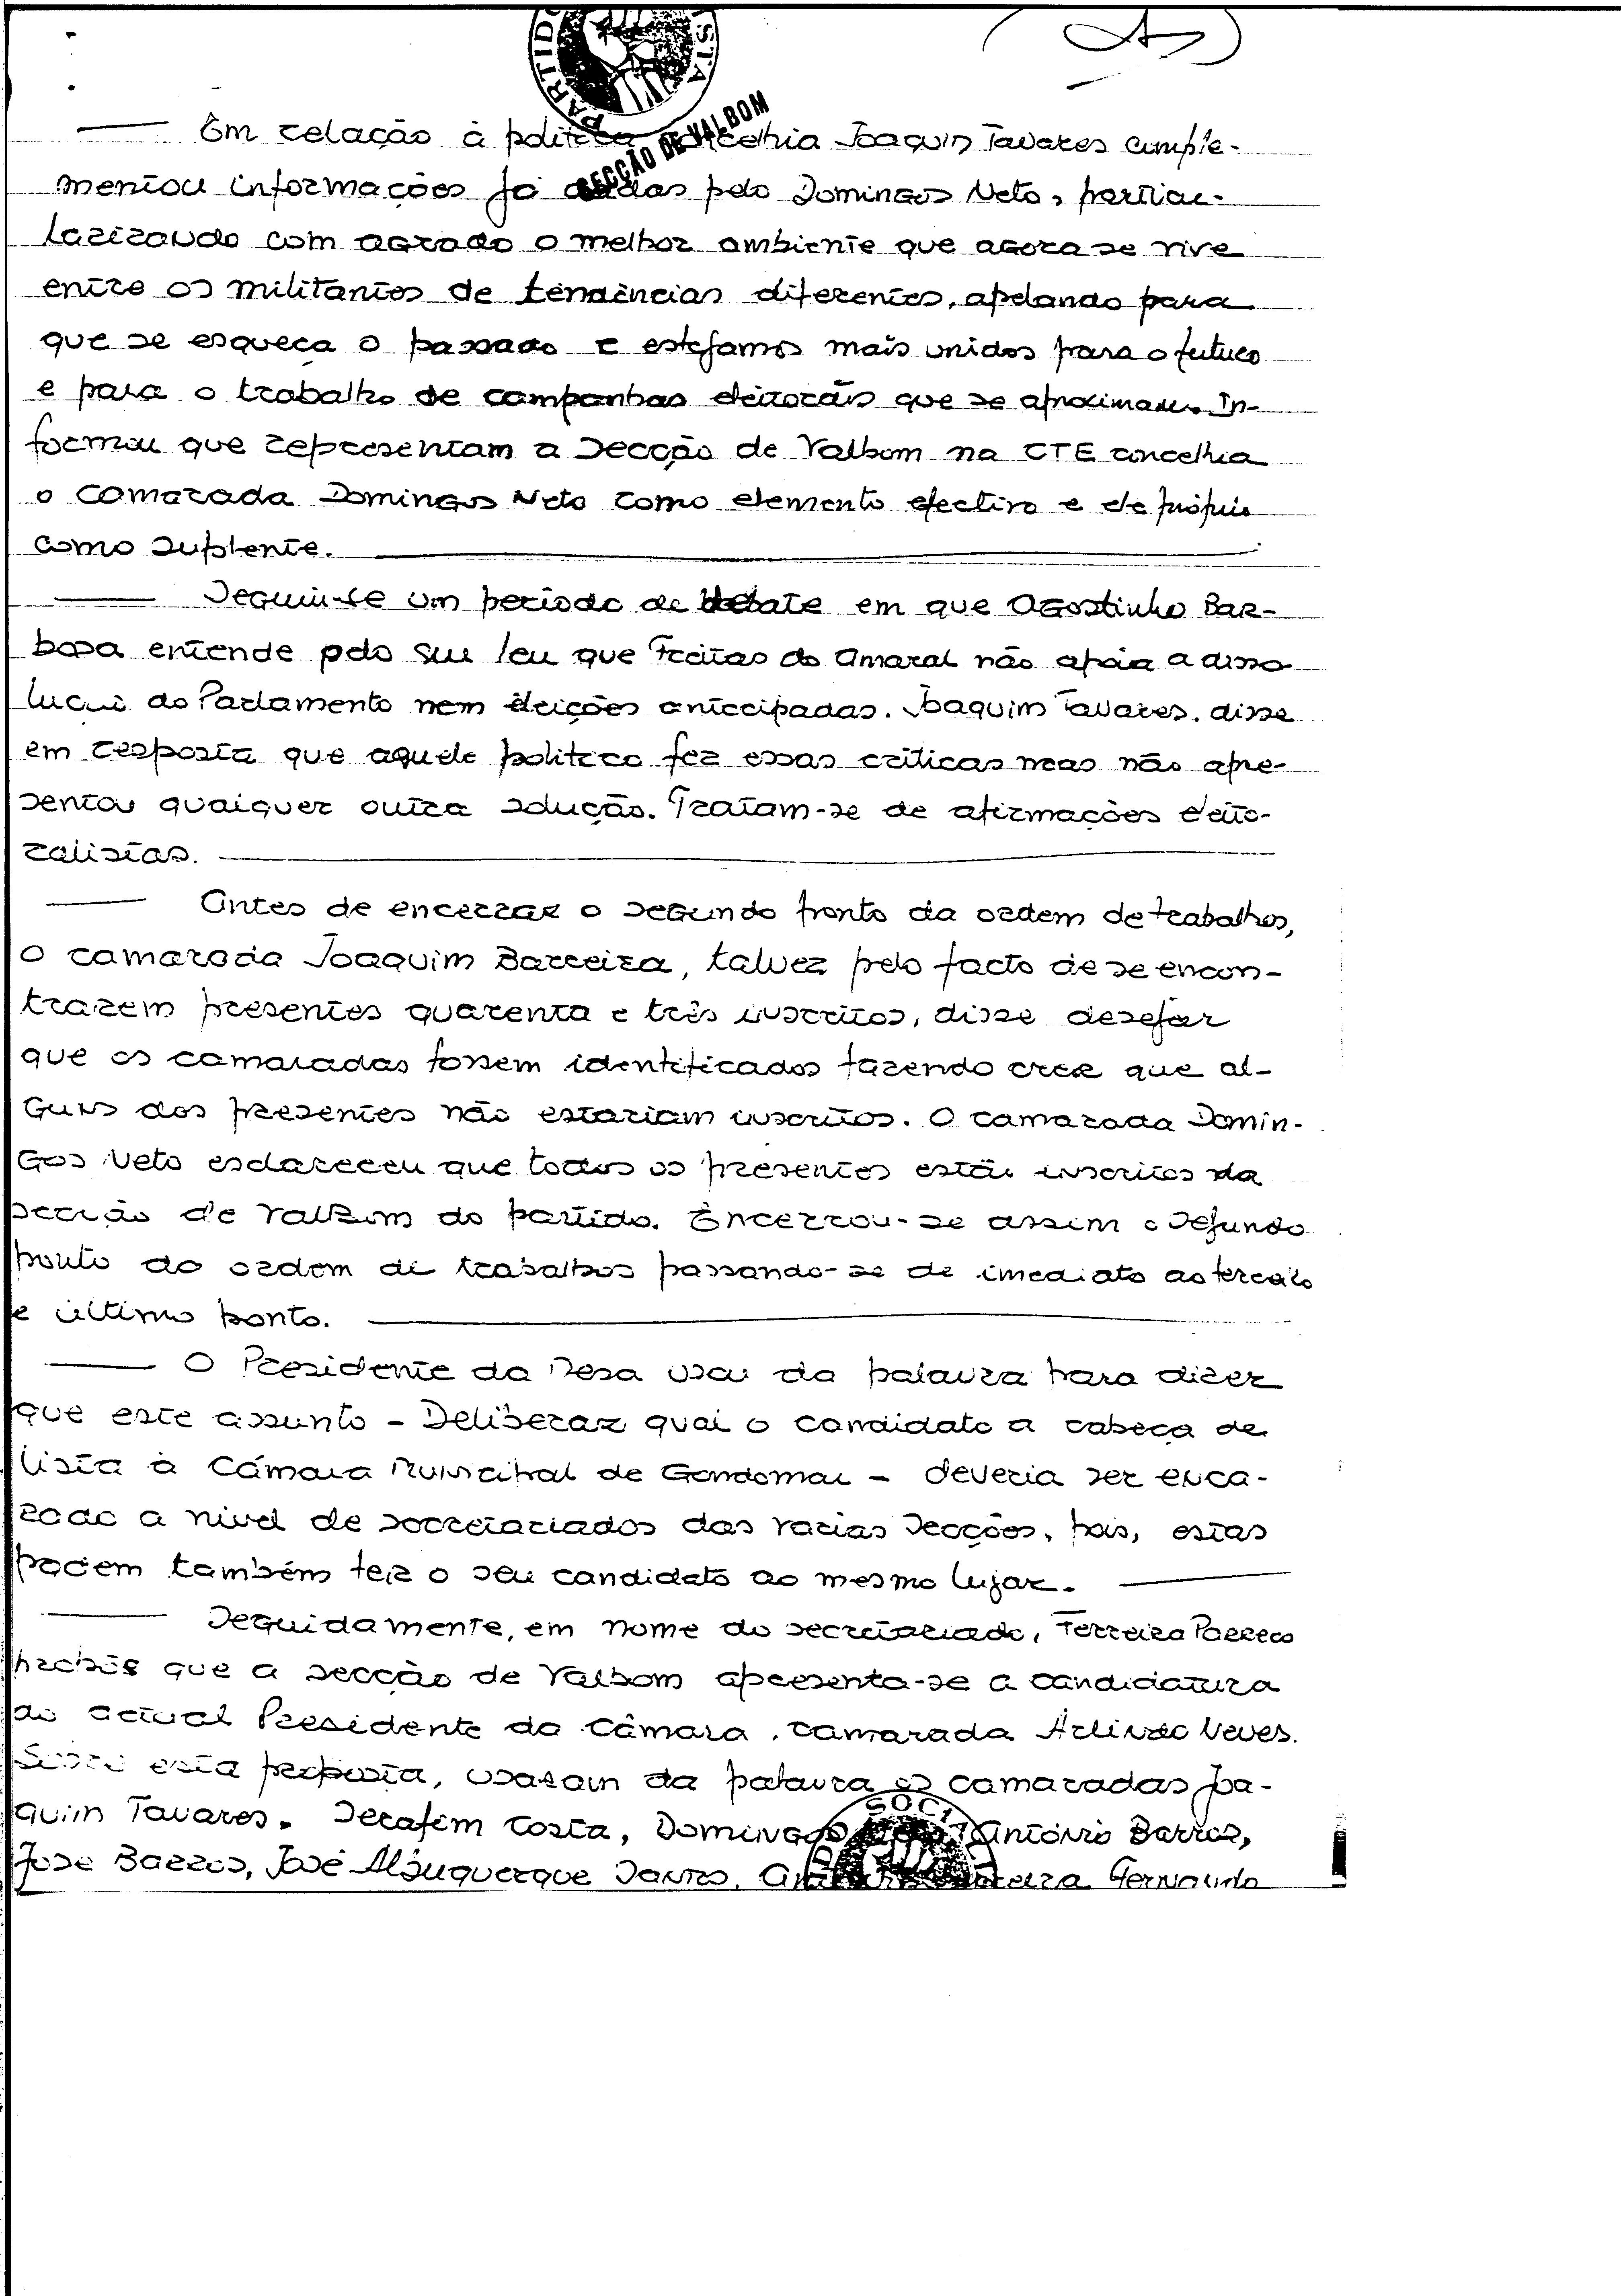 PARTIDO
ISTA
SECÇÃO DE VALBOM
—— Em relação à politica concelhia Joaquim Tavares comple-
mentou informações já dadas pelo Domingos Neto, particu-
larizando com agrado o melhor ambiente que agora se vive
entre os militantes de tendências diferentes, apelando para
que se esqueça o passado e estejamos mais unidos para o futuro
e para o trabalho de campanhas eleitorais que se aproximam. In-
formou que representam a Secção de Valbom na CTE concelhia
o camarada Domingos Neto como elemento efectivo e ele próprio
como suplente.
—— Seguiu-se um período de debate em que Agostinho Bar-
bosa entende pelo que leu que Freitas do Amaral não apoia a disso
lução do Parlamento nem eleições antecipadas. Joaquim Tavares, disse
em resposta que aquele politico fez essas críticas mas não apre-
sentou qualquer outra solução. Tratam-se de afirmações eleito-
ralistas.
—— Antes de encerrar o segundo ponto da ordem de trabalhos,
o camarada Joaquim Barreira, talvez pelo facto de se encon-
trarem presentes quarenta e três inscritos, disse desejar
que os camaradas fossem identificados fazendo crer que al-
guns dos presentes não estariam inscritos. O camarada Domin-
gos Neto esclareceu que todos os presentes estão inscritos na
secção de Valbom do partido. Encerrou-se assim o segundo
ponto da ordem de trabalhos passando-se de imediato ao terceiro
e último ponto.
—— O Presidente da Mesa usou da palavra para dizer
que este assunto - Deliberar qual o candidato a cabeça de
lista à Câmara Municipal de Gondomar - deveria ser enca-
rado a nivel de secretariados das varias Secções, pois, estas
podem também ter o seu candidato ao mesmo lugar.
—— Seguidamente, em nome do secretariado, Ferreira Parreco
propôs que a secção de Valbom apresenta-se a candidatura
do actual Presidente da Câmara, camarada Arlindo Neves.
Sobre esta proposta, usaram da palavra os camaradas Joa-
quim Tavares, Serafim Costa, Domingos António Barros,
José Barros, José Albuquerque Santos, Fernando
SOCI